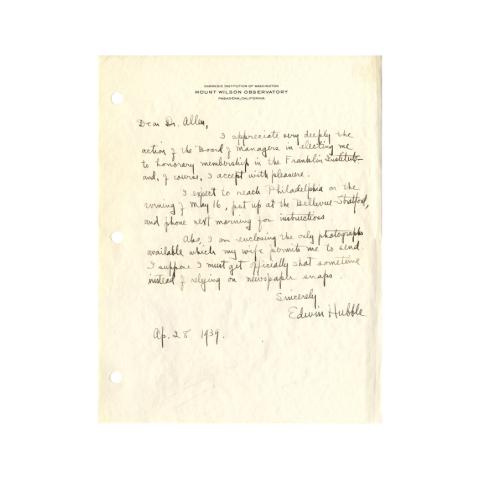 CARNEGIE INSTITUTION OF WASHINGTON
MOUNT WILSON OBSERVATORY
PASADENA, CALIFORNIA
Dear Dr. Allen,
I appreciate very deeply the
action of the Board of Managers in electing me
to honorary membership in the Franklin Institute
and, of course, I accept with pleasure.
I expect to reach Philadelphia on the
evening of May 16, put up at the Bellevue-Stratford,
and phone next morning for instructions
Also, I am enclosing the only photographs
available which my wife permits me to send
I suppose I must get officially shot sometime
instead of relying on newspaper snaps.
Sincerely
Edwin Hubble
Ap. 28 1939.